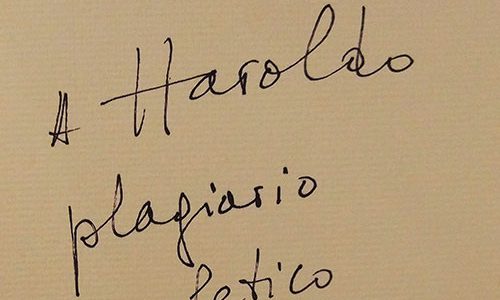 A Haroldo
plagiario